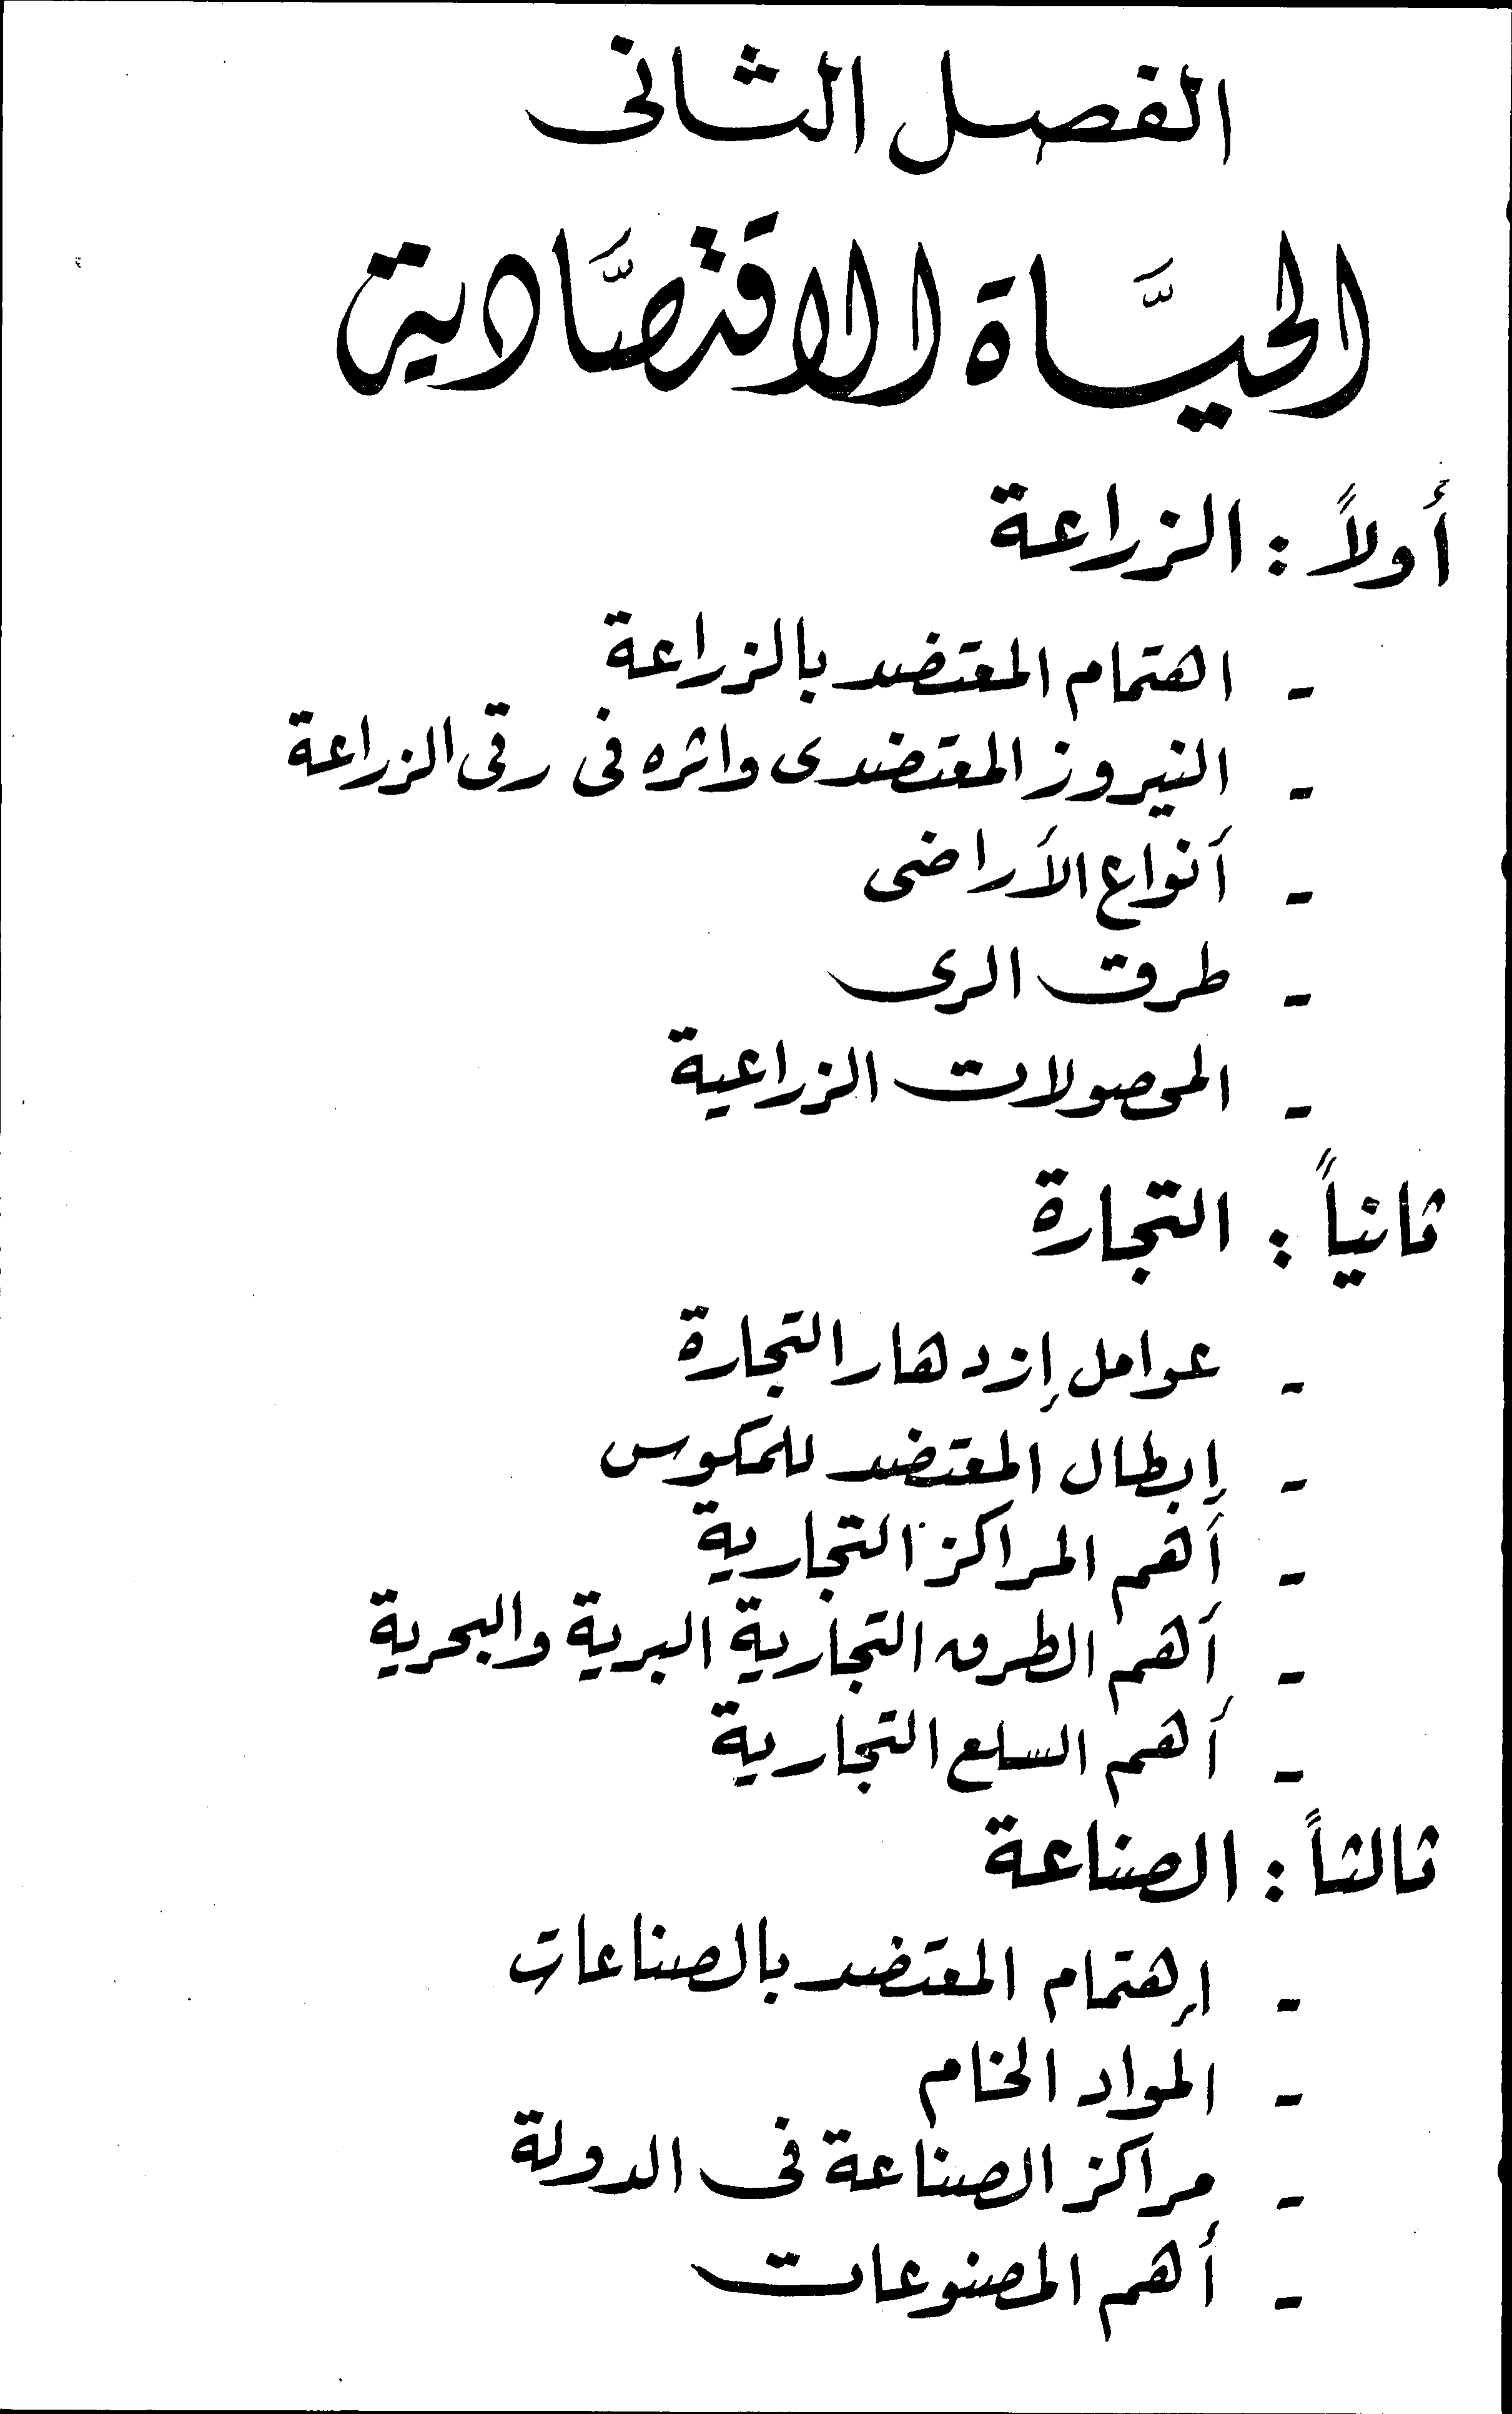 الفصل الثانى
الحيَاة الاقتصَادية
أولاً : الزراعة
- اهتمام المعتضد بالزراعة
- النيروز المعتضدى واثره فى رقى الزراعة
- أنواع الأراضى
- طرق الرى
- المحصولات الزراعية
ثانياً : التجارة
- عوامل إزدهار التجارة
- إبطال المعتضد للمكوس
- أهم المراكز التجارية
- أهم الطرق التجارية البرية والبحرية
- أهم السلع التجارية
ثالثاً : الصناعة
- إهتمام المعتضد بالصناعات
- المواد الخام
- مراكز الصناعة فى الدولة
- أهم المصنوعات